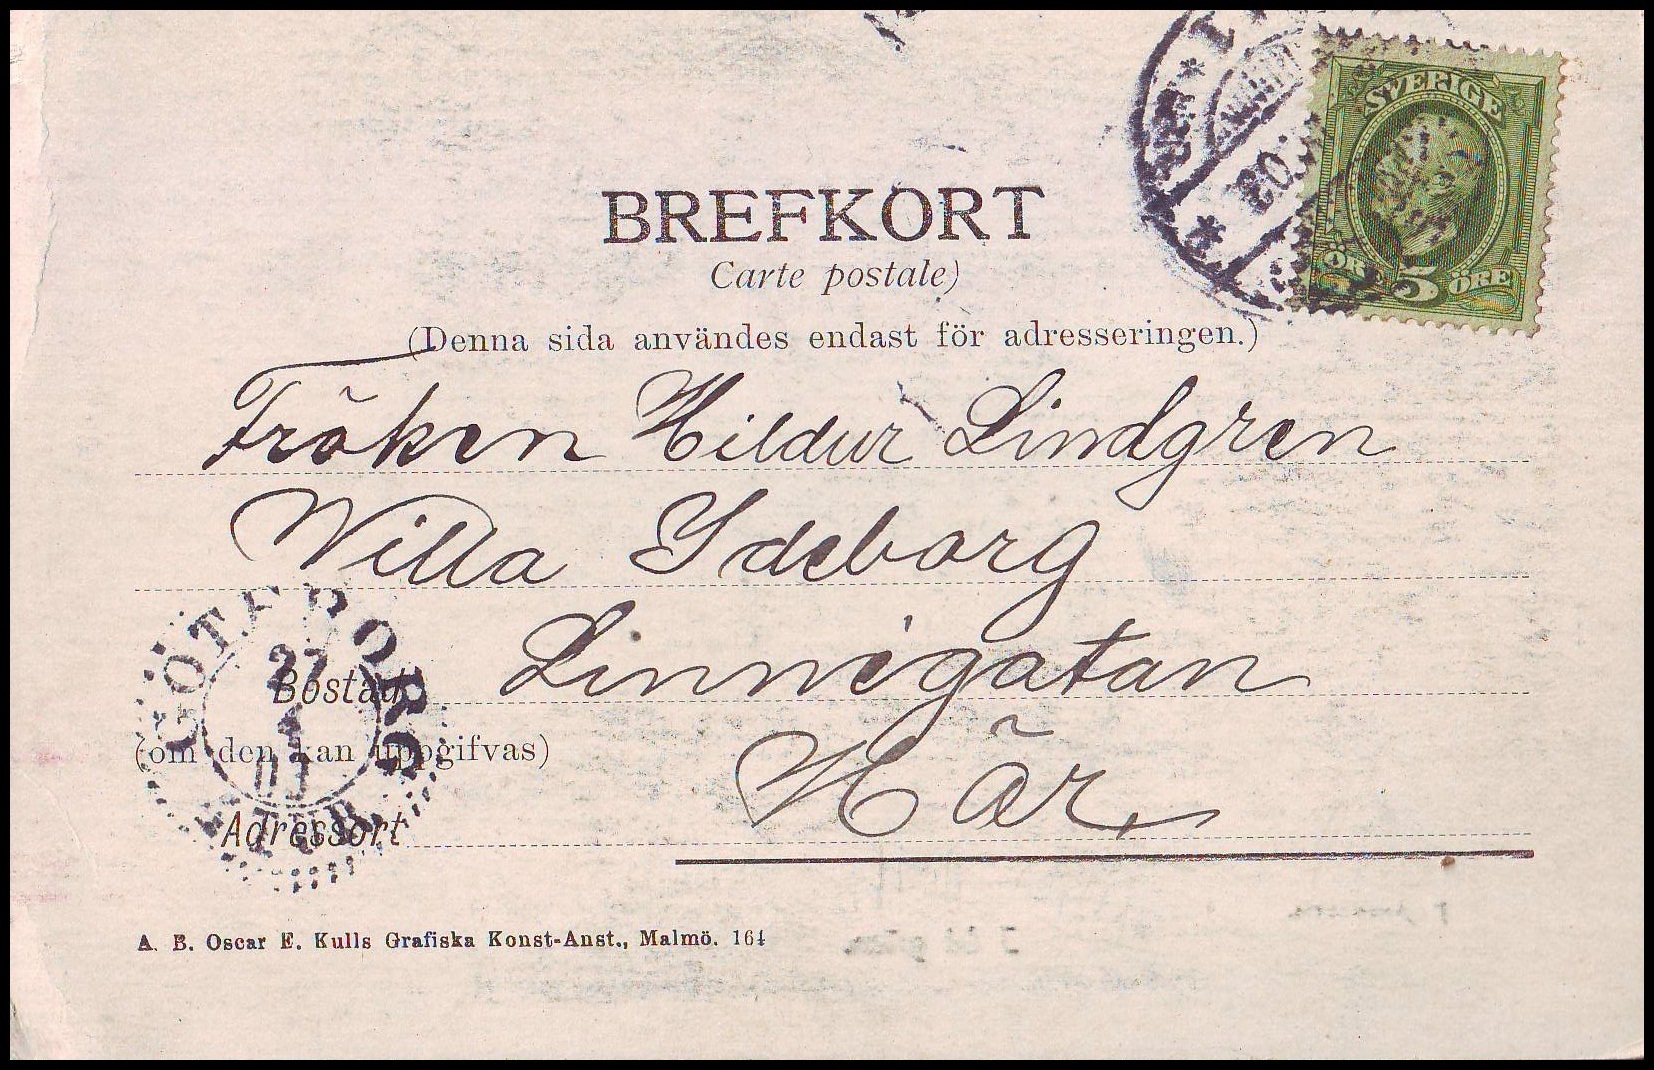 SVERIGE
ÖRE 5 ÖRE
BREFKORT
Carte postale)
(Denna sida användes endast för adresseringen.)
Fröken Hildur Lindgren
Villa Ideborg
Bostad Linnégatan
(om den kan uppgifvas)
Här
Adressort
GÖTEBORG
27
1
A. B. Oscar E. Kulls Grafiska Konst-Anst., Malmö. 164